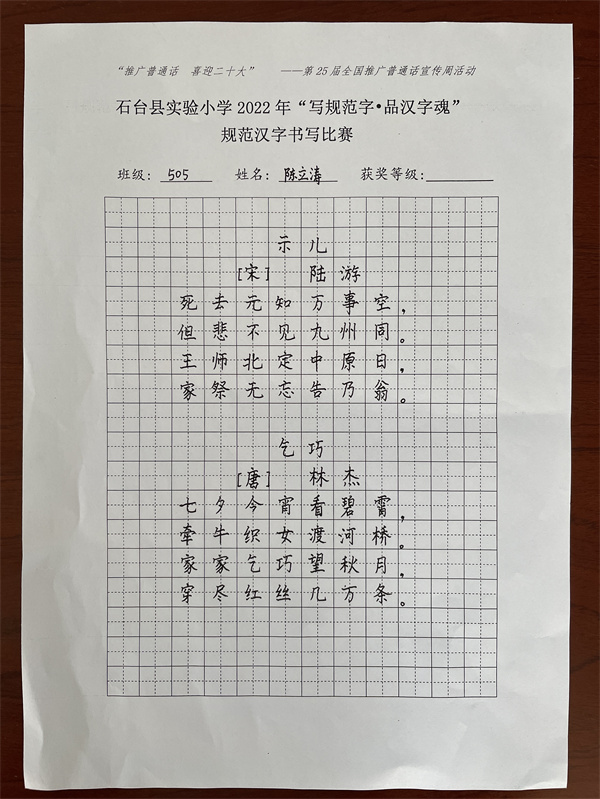 “推广普通话　喜迎二十大”　——第25届全国推广普通话宣传周活动
石台县实验小学2022年“写规范字•品汉字魂”
规范汉字书写比赛
班级：505　姓名：陈立涛　获奖等级：
示儿
[宋]　陆游
死去元知万事空，
但悲不见九州同。
王师北定中原日，
家祭无忘告乃翁。
乞巧
[唐]　林杰
七夕今宵看碧霄，
牵牛织女渡河桥。
家家乞巧望秋月，
穿尽红丝几万条。